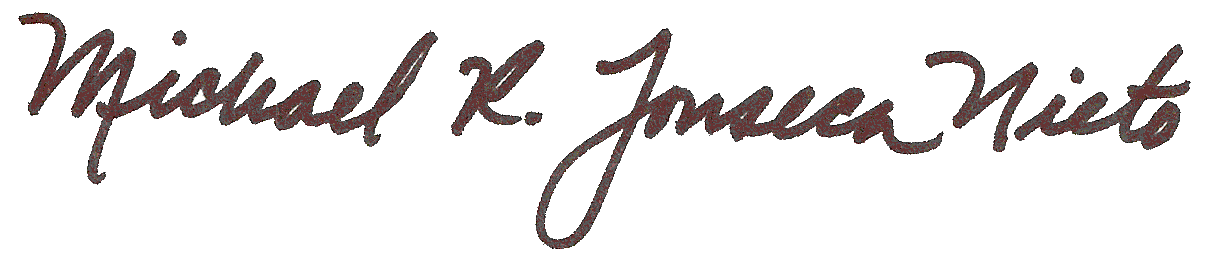 Michael R. Fonseca Nieto